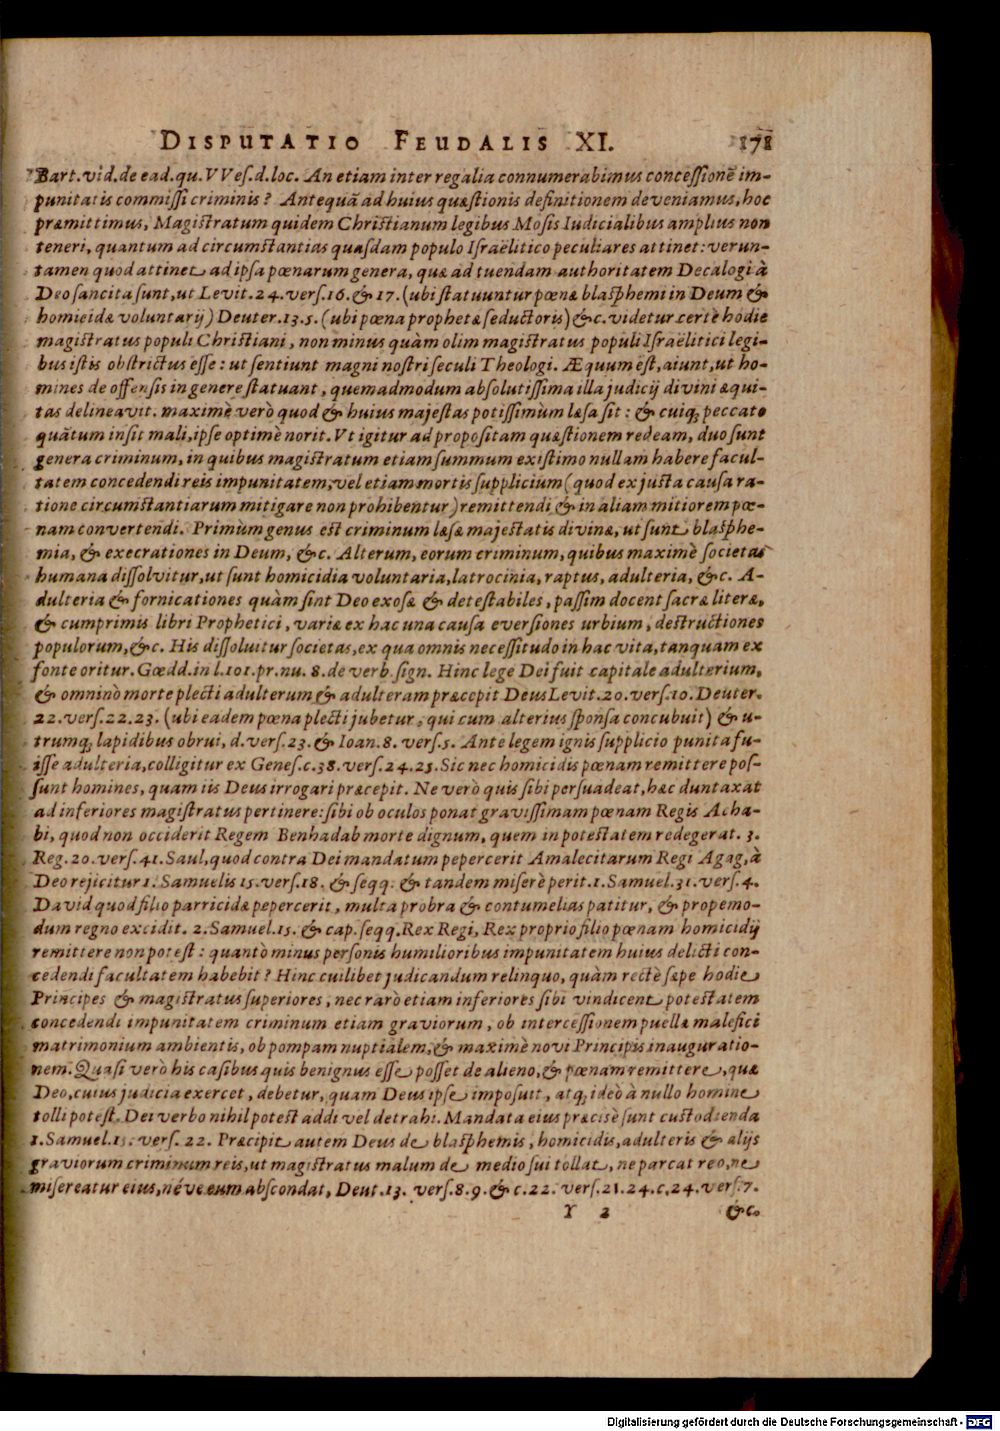 DISPUTATIO FEUDALIS XI. 171
Bart. vid. de ead. qu. VVes. d. loc. An etiam inter regalia connumerabimus concessionē im-
punitatis commissi criminis? Antequā ad huius quæstionis definitionem deveniamus, hoc
præmittimus, Magistratum quidem Christianum legibus Mosis Iudicialibus amplius non
teneri, quantum ad circumstantias quasdam populo Israëlitico peculiares attinet: verun-
tamen quod attinet ad ipsa pœnarum genera, quæ ad tuendam authoritatem Decalogi à
Deo sancita sunt, ut Levit. 24. vers. 16. & 17. (ubi statuuntur pœnæ blasphemi in Deum &
homicidæ voluntarij) Deuter. 13. 5. (ubi pœna prophetæ seductoris) &c. videtur certè hodie
magistratus populi Christiani, non minus quàm olim magistratus populi Israëlitici legi-
bus istis obstrictus esse: ut sentiunt magni nostri seculi Theologi. Æquum est, aiunt, ut ho-
mines de offensis in genere statuant, quemadmodum absolutissima illa judicij divini æqui-
tas delineavit. maximè verò quod & huius majestas potissimùm læsa sit: & cuiq; peccato
quātum insit mali, ipse optimè norit. Vt igitur ad propositam quæstionem redeam, duo sunt
genera criminum, in quibus magistratum etiam summum existimo nullam habere facul-
tatem concedendi reis impunitatem, vel etiam mortis supplicium (quod ex justa causa ra-
tione circumstantiarum mitigare non prohibentur) remittendi & in aliam mitiorem pœ-
nam convertendi. Primùm genus est criminum læsæ majestatis divinæ, ut sunt blasphe-
mia, & execrationes in Deum, &c. Alterum, eorum criminum, quibus maximè societas
humana dissolvitur, ut sunt homicidia voluntaria, latrocinia, raptus, adulteria, &c. A-
dulteria & fornicationes quàm sint Deo exosæ & detestabiles, passim docent sacræ literæ,
& cumprimis libri Prophetici, variæ ex hac una causa eversiones urbium, destructiones
populorum, &c. His dissoluitur societas, ex qua omnis necessitudo in hac vita, tanquam ex
fonte oritur. Gœdd. in l. 101. pr. nu. 8. de verb. sign. Hinc lege Dei fuit capitale adulterium,
& omninò morte plecti adulterum & adulteram præcepit Deus Levit. 20. vers. 10. Deuter.
22. vers. 22. 23. (ubi eadem pœna plecti jubetur, qui cum alterius sponsa concubuit) & u-
trumq; lapidibus obrui, d. vers. 23. & Ioan. 8. vers. 5. Ante legem ignis supplicio punita fu-
isse adulteria, colligitur ex Genes. c. 38. vers. 24. 25. Sic nec homicidis pœnam remittere pos-
sunt homines, quam iis Deus irrogari præcepit. Ne verò quis sibi persuadeat, hæc duntaxat
ad inferiores magistratus pertinere: sibi ob oculos ponat gravissimam pœnam Regis Acha-
bi, quod non occiderit Regem Benhadab morte dignum, quem in potestatem redegerat. 3.
Reg. 20. vers. 41. Saul, quod contra Dei mandatum pepercerit Amalecitarum Regi Agag, à
Deo rejicitur 1. Samuelis 15. vers. 18. & seqq. & tandem miserè perit. 1. Samuel. 31. vers. 4.
David quod filio parricidæ pepercerit, multa probra & contumelias patitur, & propemo-
dum regno excidit. 2. Samuel. 15. & cap. seqq. Rex Regi, Rex proprio filio pœnam homicidij
remittere non potest: quantò minus personis humilioribus impunitatem huius delicti con-
cedendi facultatem habebit? Hinc cuilibet judicandum relinquo, quàm rectè sæpe hodie
Principes & magistratus superiores, nec rarò etiam inferiores sibi vindicent potestatem
concedendi impunitatem criminum etiam graviorum, ob intercessionem puellæ malefici
matrimonium ambientis, ob pompam nuptialem, & maximè novi Principis inauguratio-
nem. Quasi verò his casibus quis benignus esse posset de alieno, & pœnam remittere, quæ
Deo, cuius judicia exercet, debetur, quam Deus ipse imposuit, atq; ideò à nullo homine
tolli potest. Dei verbo nihil potest addi vel detrahi. Mandata eius præcisè sunt custodienda
1. Samuel. 15. vers. 22. Præcipit autem Deus de blasphemis, homicidis, adulteris & alijs
graviorum criminum reis, ut magistratus malum de medio sui tollat, ne parcat reo, ne
misereatur eius, néve eum abscondat, Deut. 13. vers. 8. 9. & c. 22. vers. 21. 24. c. 24. vers. 7.
Y 2 &c.
Digitalisierung gefördert durch die Deutsche Forschungsgemeinschaft - DFG